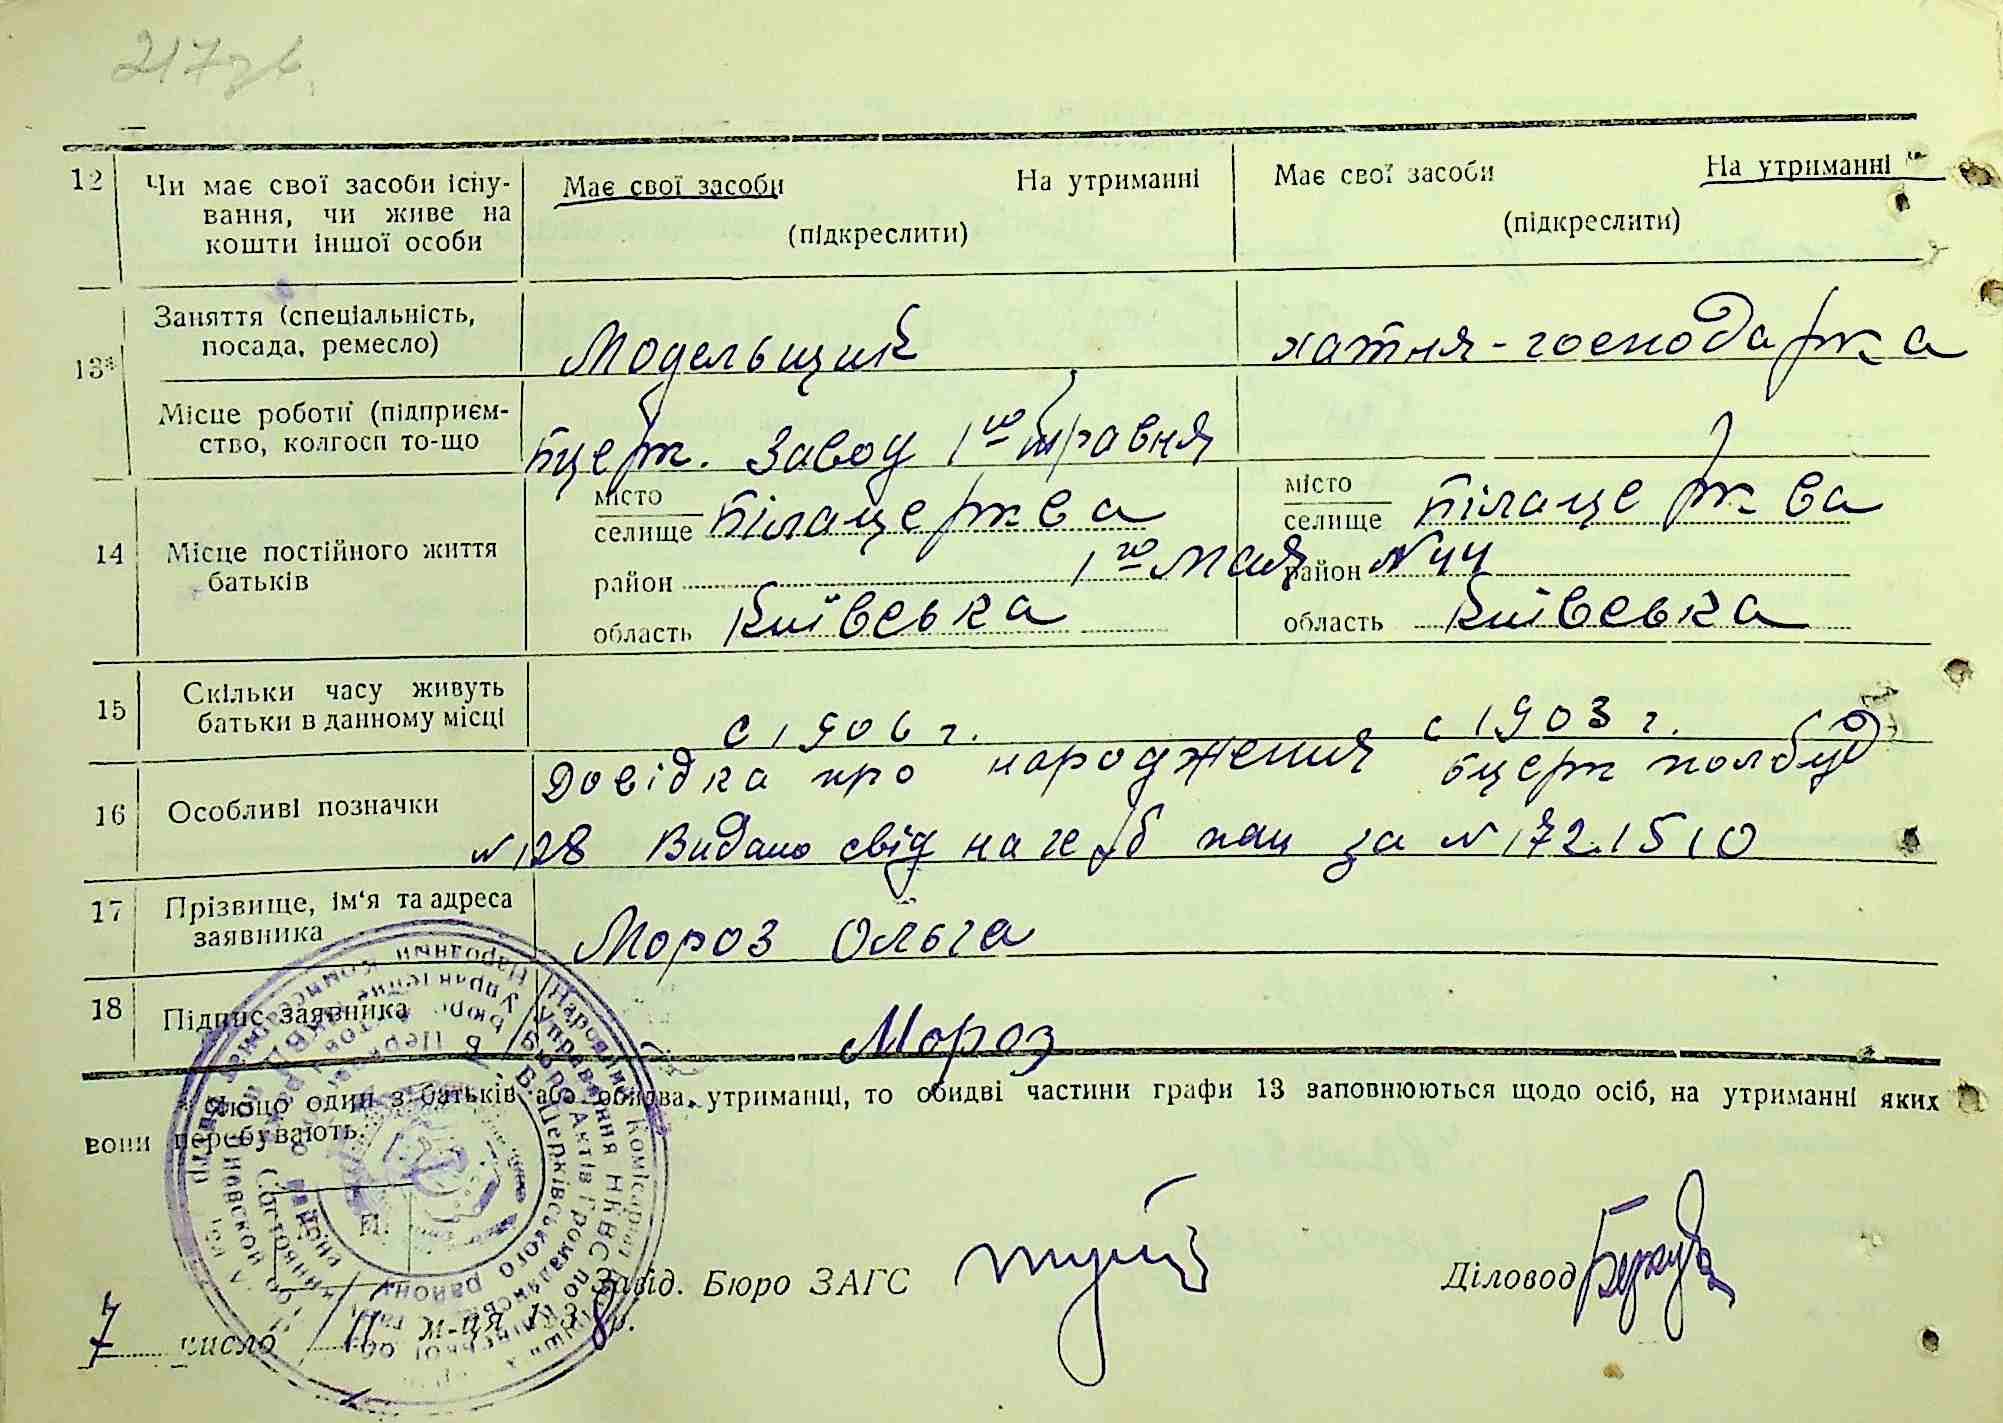 217зв.
12 Чи має свої засоби існу- Має свої засоби На утриманні Має свої засоби На утриманні
вання, чи живе на (підкреслити) (підкреслити)
кошти іншої особи
13* Заняття (спеціальність, Модельщик хатня-господарка
посада, ремесло)
Місце роботи (підприєм- Бцерк. Завод 1го травня
ство, колгосп то-що
14 Місце постійного життя батьків
місто Білацерква місто Білацерква
селище селище
район 1го Мая район №44
область Київська область Київська
15 Скільки часу живуть
батьки в данному місці с 1906 г. с 1903 г.
16 Особливі позначки Довідка про народження бцерк полбуд
№128 Видано свід на за №1721510
17 Прізвище, ім'я та адреса
заявника Мороз Ольга
18 Підпис заявника Мороз
Якщо один з батьків або обидва, утриманці, то обидві частини графи 13 заповнюються щодо осіб, на утриманні яких
вони перебувають.
Завід. Бюро ЗАГС Діловод
7 число 11 м-ця 1938р.